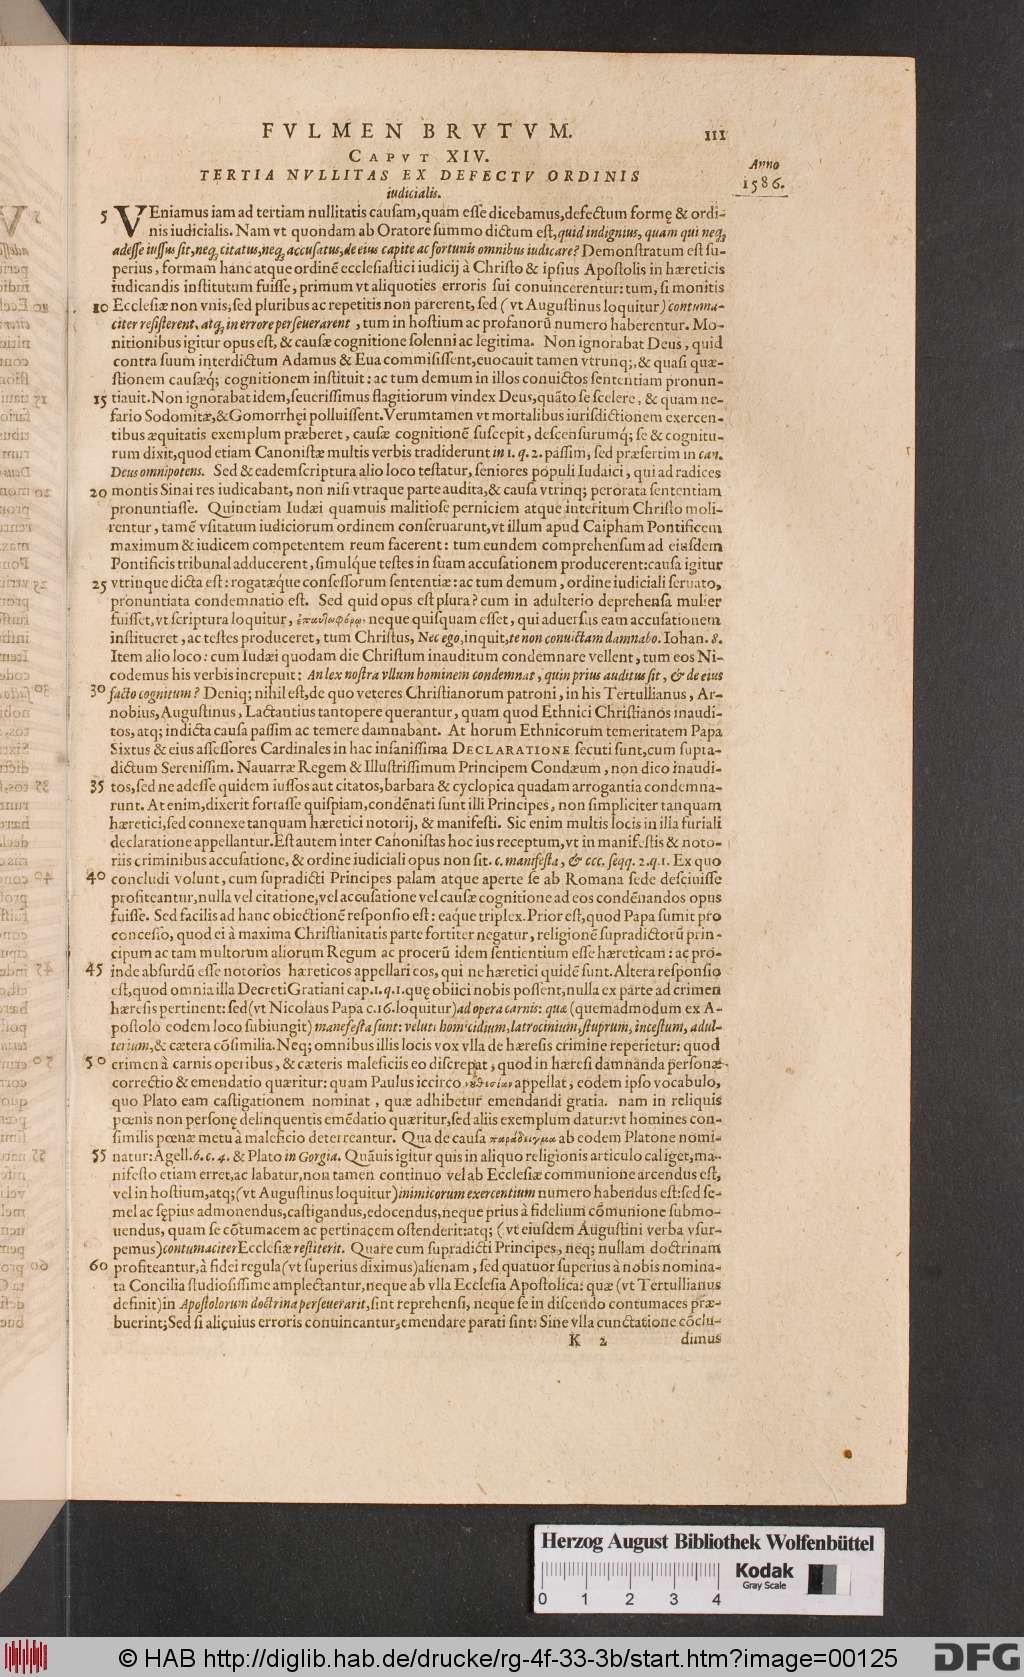 FVLMEN BRVTVM. 111
CAPVT XIV.
Anno
1586.
TERTIA NVLLITAS EX DEFECTV ORDINIS
iudicialis.
5 VEniamus iam ad tertiam nullitatis causam, quam esse dicebamus, defectum formę & ordi-
nis iudicialis. Nam vt quondam ab Oratore summo dictum est, quid indignius, quam qui neq;
adesse iussus sit, neq; citatus, neq; accusatus, de eius capite ac fortunis omnibus iudicare? Demonstratum est su-
perius, formam hanc atque ordinē ecclesiastici iudicij à Christo & ipsius Apostolis in hæreticis
iudicandis institutum fuisse, primum vt aliquoties erroris sui conuincerentur: tum, si monitis
10 Ecclesiæ non vnis, sed pluribus ac repetitis non parerent, sed (vt Augustinus loquitur) contuma-
citer resisterent, atq; in errore perseuerarent, tum in hostium ac profanorū numero haberentur. Mo-
nitionibus igitur opus est, & causæ cognitione solenni ac legitima. Non ignorabat Deus, quid
contra suum interdictum Adamus & Eua commisissent, euocauit tamen vtrunq;, & quasi quæ-
stionem causæq; cognitionem instituit: ac tum demum in illos conuictos sententiam pronun-
15 tiauit. Non ignorabat idem, seuerissimus flagitiorum vindex Deus, quāto se scelere, & quam ne-
fario Sodomitæ, & Gomorrhęi polluissent. Verumtamen vt mortalibus iurisdictionem exercen-
tibus æquitatis exemplum præberet, causæ cognitionē suscepit, descensurumq́; se & cognitu-
rum dixit, quod etiam Canonistæ multis verbis tradiderunt in 1. q. 2. passim, sed præsertim in can.
Deus omnipotens. Sed & eadem scriptura alio loco testatur, seniores populi Iudaici, qui ad radices
20 montis Sinai res iudicabant, non nisi vtraque parte audita, & causa vtrinq; perorata sententiam
pronuntiasse. Quinetiam Iudæi quamuis malitiose perniciem atque interitum Christo moli-
rentur, tamē vsitatum iudiciorum ordinem conseruarunt, vt illum apud Caipham Pontificem
maximum & iudicem competentem reum facerent: tum eundem comprehensum ad eiusdem
Pontificis tribunal adducerent, simulq́ue testes in suam accusationem producerent: causa igitur
25 vtrinque dicta est: rogatæque consessorum sententiæ: ac tum demum, ordine iudiciali seruato,
pronuntiata condemnatio est. Sed quid opus est plura? cum in adulterio deprehensa mulier
fuisset, vt scriptura loquitur, neque quisquam esset, qui aduersus eam accusationem
institueret, ac testes produceret, tum Christus, Nec ego, inquit, te non conuictam damnabo. Iohan. 8.
Item alio loco: cum Iudæi quodam die Christum inauditum condemnare vellent, tum eos Ni-
codemus his verbis increpuit: An lex nostra vllum hominem condemnat, quin prius auditus sit, & de eius
30 facto cognitum? Deniq; nihil est, de quo veteres Christianorum patroni, in his Tertullianus, Ar-
nobius, Augustinus, Lactantius tantopere querantur, quam quod Ethnici Christianos inaudi-
tos, atq; indicta causa passim ac temere damnabant. At horum Ethnicorum temeritatem Papa
Sixtus & eius assessores Cardinales in hac insanissima DECLARATIONE secuti sunt, cum supra-
dictum Serenissim. Nauarræ Regem & Illustrissimum Principem Condæum, non dico inaudi-
35 tos, sed ne adesse quidem iussos aut citatos, barbara & cyclopica quadam arrogantia condemna-
runt. At enim, dixerit fortasse quispiam, condēnati sunt illi Principes, non simpliciter tanquam
hæretici, sed connexe tanquam hæretici notorij, & manifesti. Sic enim multis locis in illa furiali
declaratione appellantur. Est autem inter Canonistas hoc ius receptum, vt in manifestis & noto-
riis criminibus accusatione, & ordine iudiciali opus non sit. c. manifesta, & ccc. seqq. 2. q. 1. Ex quo
40 concludi volunt, cum supradicti Principes palam atque aperte se ab Romana sede desciuisse
profiteantur, nulla vel citatione, vel accusatione vel causæ cognitione ad eos condēnandos opus
fuisse. Sed facilis ad hanc obiectionē responsio est: eaque triplex. Prior est, quod Papa sumit pro
concesso, quod ei à maxima Christianitatis parte fortiter negatur, religionē supradictorū prin-
cipum ac tam multorum aliorum Regum ac procerū idem sentientium esse hæreticam: ac pro-
45 inde absurdū esse notorios hæreticos appellari eos, qui ne hæretici quidē sunt. Altera responsio
est, quod omnia illa Decreti Gratiani cap. 1. q. 1. quę obiici nobis possent, nulla ex parte ad crimen
hæresis pertinent: sed (vt Nicolaus Papa c. 16. loquitur) ad opera carnis: quæ (quemadmodum ex A-
postolo eodem loco subiungit) manefesta sunt: veluti homicidium, latrocinium, stuprum, incestum, adul-
terium, & cætera cōsimilia. Neq; omnibus illis locis vox vlla de hæresis crimine reperietur: quod
50 crimen à carnis operibus, & cæteris maleficiis eo discrepat, quod in hæresi damnanda personæ
correctio & emendatio quæritur: quam Paulus iccirco appellat, eodem ipso vocabulo,
quo Plato eam castigationem nominat, quæ adhibetur emendandi gratia. nam in reliquis
pœnis non personę delinquentis emēdatio quæritur, sed aliis exemplum datur: vt homines con-
similis pœnæ metu à maleficio deterreantur. Qua de causa παράδειγμα ab eodem Platone nomi-
55 natur: Agell. 6. c. 4. & Plato in Gorgia. Quāuis igitur quis in aliquo religionis articulo caliget, ma-
nifesto etiam erret, ac labatur, non tamen continuo vel ab Ecclesiæ communione arcendus est,
vel in hostium, atq; (vt Augustinus loquitur) inimicorum exercentium numero habendus est: sed se-
mel ac sępius admonendus, castigandus, edocendus, neque prius à fidelium cōmunione submo-
uendus, quam se cōtumacem ac pertinacem ostenderit: atq; (vt eiusdem Augustini verba vsur-
pemus) contumaciter Ecclesiæ restiterit. Quare cum supradicti Principes, neq; nullam doctrinam
60 profiteantur, à fidei regula (vt superius diximus) alienam, sed quatuor superius à nobis nomina-
ta Concilia studiosissime amplectantur, neque ab vlla Ecclesia Apostolica: quæ (vt Tertullianus
definit) in Apostolorum doctrina perseuerarit, sint reprehensi, neque se in discendo contumaces præ-
buerint; Sed si alicuius erroris conuincantur, emendare parati sint: Sine vlla cunctatione cōclu-
K 2 dimus
Herzog August Bibliothek Wolfenbüttel
Kodak
Gray Scale
0 1 2 3 4
© HAB http://diglib.hab.de/drucke/rg-4f-33-3b/start.htm?image=00125
DFG